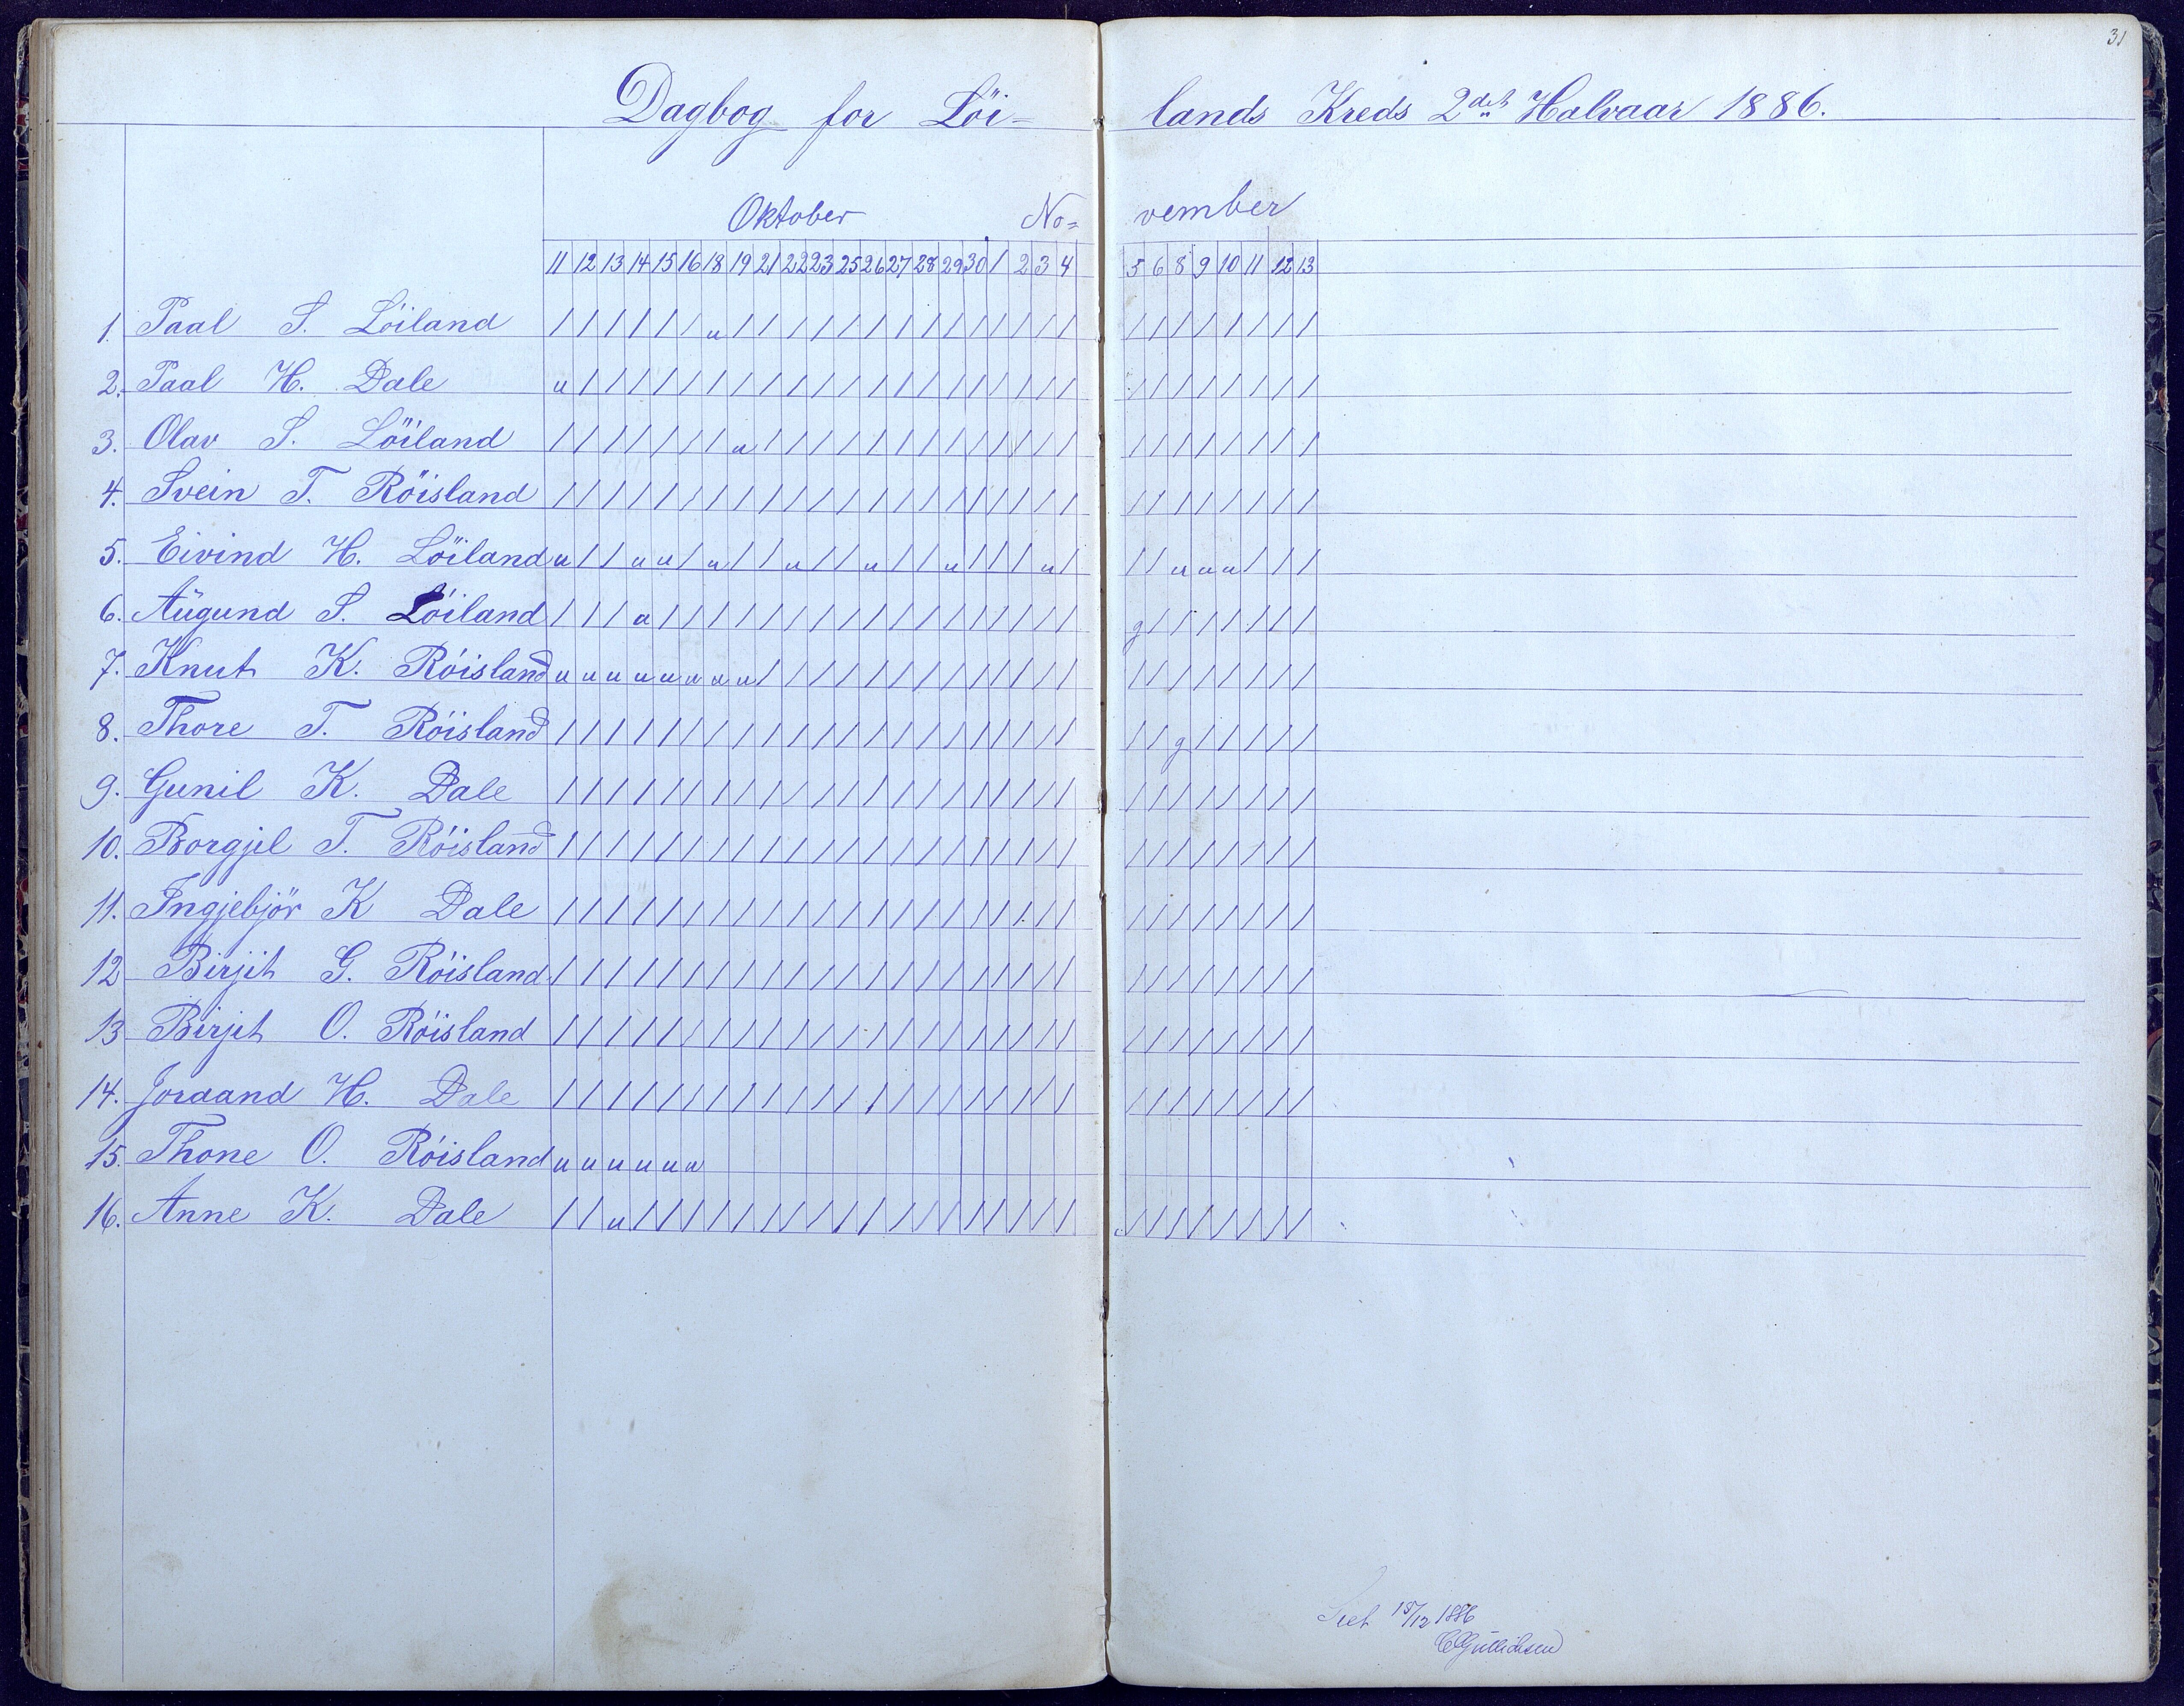 31
Dagbog for Löi= lands Kreds 2det Halvaar 1886.
Oktober No= vember
11 12 13 14 15 16 18 19 21 22 23 25 26 27 28 29 30 1 2 3 4 5 6 8 9 10 11 12 13
1. Paal S. Löiland / / / / / / u / / / / / / / / / / / / / / / / / / / / / /
2. Paal H. Dale u / / / / / / / / / / / / / / / / / / / / / / / / / / / /
3. Olav S. Löiland / / / / / / / u / / / / / / / / / / / / / / / / / / / / /
4. Svein T. Röisland / / / / / / / / / / / / / / / / / / / / / / / / / / / / /
5. Eivind H. Löiland u / / u u / u / / u / / u / / u / / / u / / / u u u / / /
6. Aügund S. Löiland / / / u / / / / / / / / / / / / / / / / / g / / / / / / /
7. Knut K. Röisland u u u u u u u u / / / / / / / / / / / / / / / / / / / / /
8. Thore T. Röisland / / / / / / / / / / / / / / / / / / / / / / / g / / / / /
9. Gunil K. Dale / / / / / / / / / / / / / / / / / / / / / / / / / / / / /
10. Borgjil T. Röisland / / / / / / / / / / / / / / / / / / / / / / / / / / / / /
11. Ingjebjör K Dale / / / / / / / / / / / / / / / / / / / / / / / / / / / / /
12 Birjit G. Röisland / / / / / / / / / / / / / / / / / / / / / / / / / / / / /
13 Birjit O. Röisland / / / / / / / / / / / / / / / / / / / / / / / / / / / / /
14. Joraand H. Dale / / / / / / / / / / / / / / / / / / / / / / / / / / / / /
15. Thone O. Röisland u u u u u u
16. Anne K. Dale / / u / / / / / / / / / / / / / / / / / / / / / / / / / /
Seet 15/12 1886
C Gullichsen